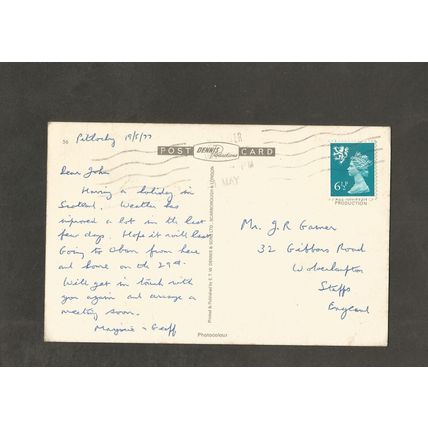 Pitlochry 19/5/77
56
POST DENNIS Productions CARD
MAY
6½P
PRODUCTION
Dear John
Having a holiday in
Scotland. Weather has
improved a lot in the last
few days. Hope it will last.
Going to Oban from here
and home on the 29th.
Will get in touch with
you again and arrange a
meeting soon.
Marjorie & Geoff
Printed & Published by E. T. W. DENNIS & SONS LTD., SCARBOROUGH & LONDON
Mr. J.R Garner
32 Gibbons Road
Wolverhampton
Staffs
England
Photocolour